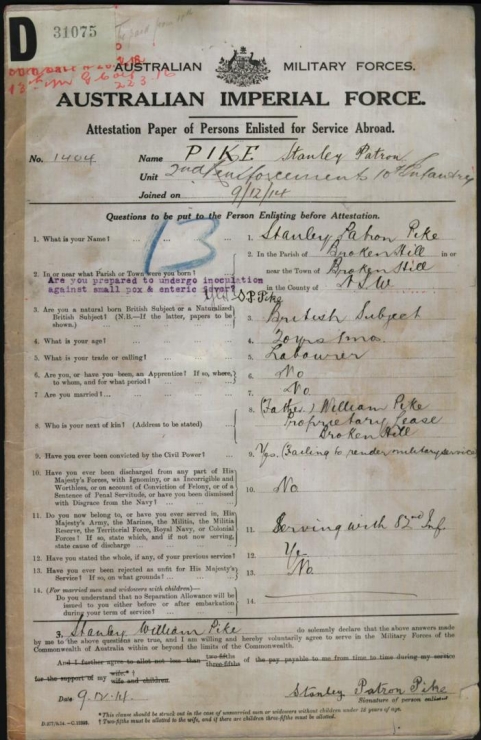 D
31075
AUSTRALIAN MILITARY FORCES.
AUSTRALIAN IMPERIAL FORCE.
Attestation Paper of Persons Enlisted for Service Abroad.
No. 1404 Name PIKE Stanley Patron
Unit 2nd Reinforcements 10th Infantry
Joined on 9/12/14
Questions to be put to the Person Enlisting before Attestation.
13
1. What is your Name? ... ... ... 1. Stanley Patron Pike
2. In or near what Parish or Town were you born? 2. In the Parish of Broken Hill in or
near the Town of Broken Hill
in the County of N.S.W
Are you prepared to undergo inoculation
against small pox & enteric fever?
Yes S.P. Pike
3. Are you a natural born British Subject or a Naturalized British Subject? (N.B.—If the latter, papers to be shown.) 3. British Subject
4. What is your age? 4. 20 yrs 1 mo.
5. What is your trade or calling? 5. Labourer
6. Are you, or have you been, an Apprentice? If so, where, to whom, and for what period? 6. No
7. Are you married? 7. No
8. Who is your next of kin? (Address to be stated) 8. (Father) William Pike
Proprietary Lease
Broken Hill
9. Have you ever been convicted by the Civil Power? 9. Yes. (Failing to render military service)
10. Have you ever been discharged from any part of His
Majesty's Forces, with Ignominy, or as Incorrigible and
Worthless, or on account of Conviction of Felony, or of a
Sentence of Penal Servitude, or have you been dismissed
with Disgrace from the Navy? 10. No
11. Do you now belong to, or have you ever served in, His
Majesty's Army, the Marines, the Militia, the Militia
Reserve, the Territorial Force, Royal Navy, or Colonial
Forces? If so, state which, and if not now serving,
state cause of discharge 11. Serving with 82nd Inf
12. Have you stated the whole, if any, of your previous service? 12. Yes
13. Have you ever been rejected as unfit for His Majesty's
Service? If so, on what grounds? 13. No
14. (For married men and widowers with children)—
Do you understand that no Separation Allowance will be
issued to you either before or after embarkation
during your term of service? 14.
3. Stanley William Pike do solemnly declare that the above answers made
by me to the above questions are true, and I am willing and hereby voluntarily agree to serve in the Military Forces of the
Commonwealth of Australia within or beyond the limits of the Commonwealth.
And I further agree to allot not less than two-fifths three-fifths of the pay payable to me from time to time during my service
for the support of my wife.* wife and children.
Date 9.12.14. Stanley Patron Pike
Signature of person enlisted.
*This clause should be struck out in the case of unmarried men or widowers without children under 18 years of age.
† Two-fifths must be allotted to the wife, and if there are children three-fifths must be allotted.